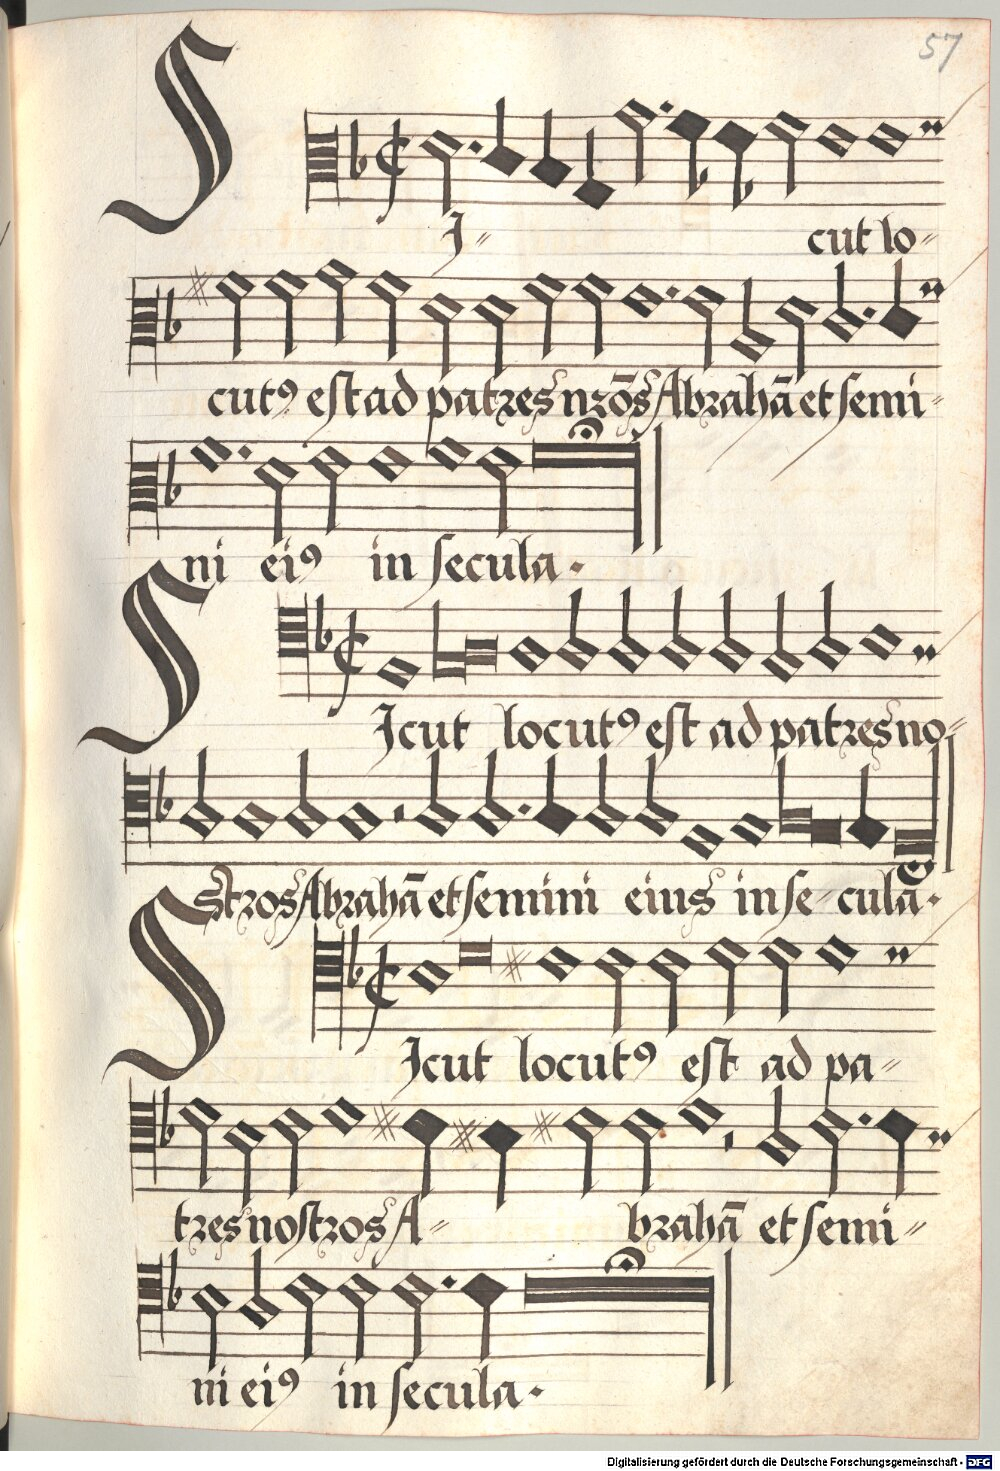 57
SI- cut lo-
cutꝰ est ad patres nr̄os Abrahā et semi-
ni eiꝰ in secula.
SIcut locutꝰ est ad patres no-
stros Abrahā et semini eius in se- cula.
SIcut locutꝰ est ad pa-
tres nostros A- brahā et semi-
ni eiꝰ in secula.
Digitalisierung gefördert durch die Deutsche Forschungsgemeinschaft - DFG